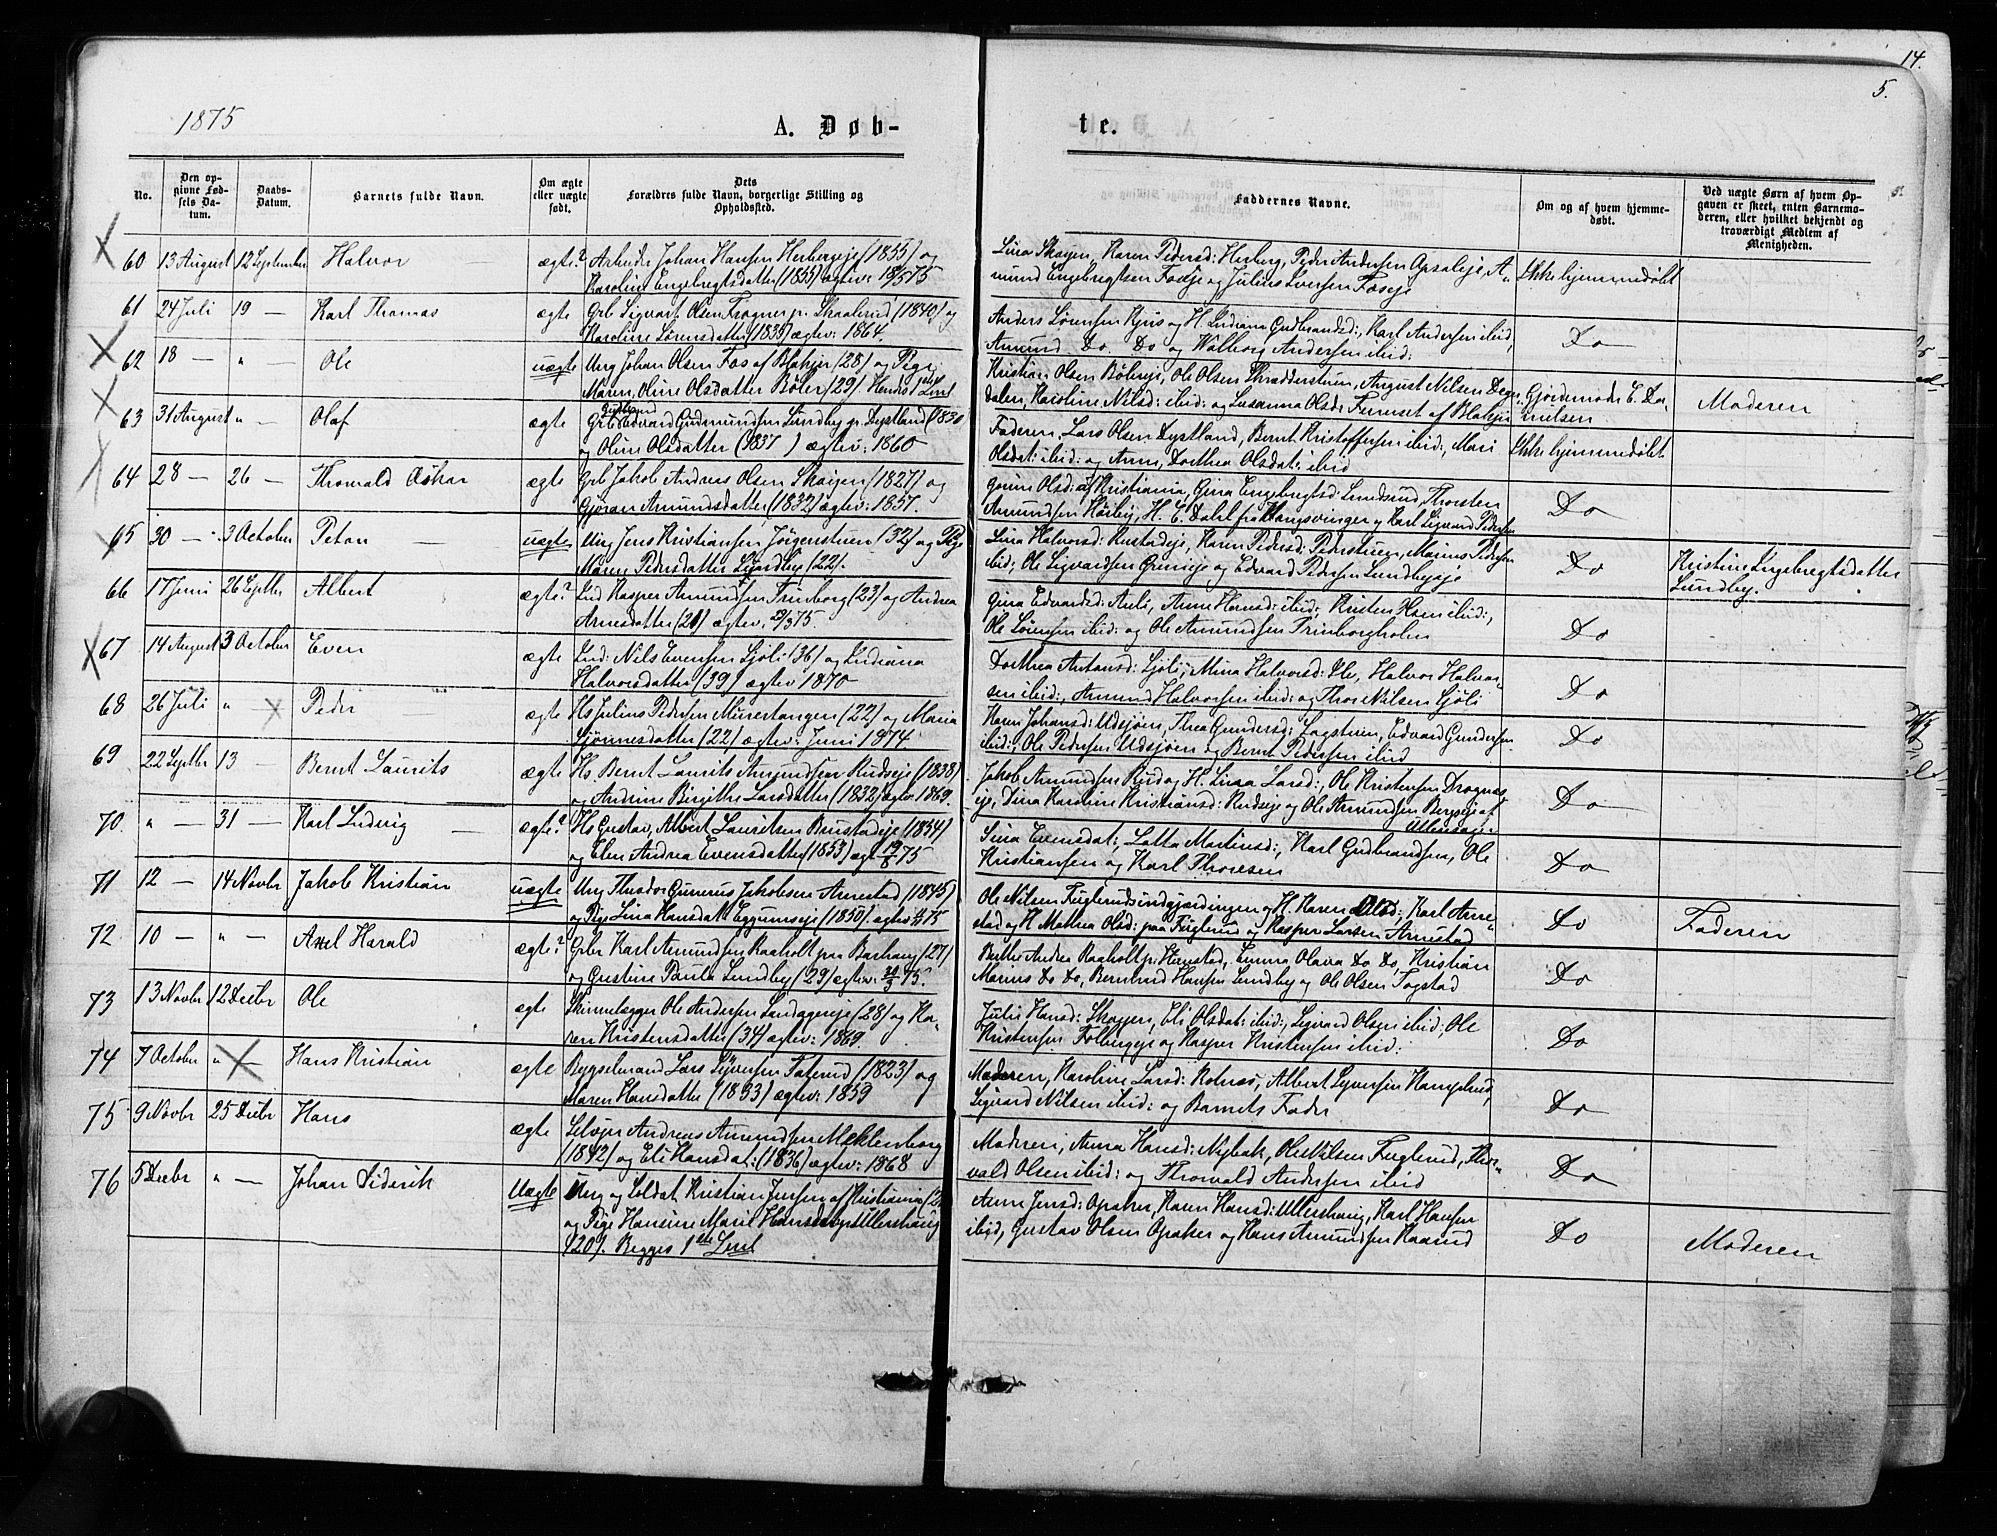 14.
5.
1875
A. Døb-
te.
No.
Den op-
givne Fød-
sels Da-
tum.
Daabs-
Datum.
Barnets fulde Navn.
Om ægte
eller uægte
født.
Dets
Forældres fulde Navn, borgerlige Stilling og
Opholdssted.
Faddernes Navne.
Om og af hvem hjemme-
døbt.
Ved uægte Børn af hvem Op-
gaven er skeet, enten Barnemo-
deren, eller hvilket bekjendt og
troværdigt Medlem af
Menigheden.
60 13 August 12 September Halvor ægte? Arbeider Johan Hansen Herbergeie (1855) og
Karoline Engebregtsdatter (1855) ægtev: 75
Lina Skøien, Karen Pedersd: Herberg, Peder Andersen Opsaleje, A-
mund Engebregtsen Foseje og Julius Iversen Foseje
Ikke hjemmedøbt
61 24 Juli 19 — Karl Thomas ægte Grb Sigvart Olsen Frogner p. Skaalerud (1840) og
Karoline Sørensdatter (1835) ægtev: 1864.
Anders Sørensen Kjus og H. Indiana Gudbrandsd:, Karl Andersen ibid,
Amund Do Do og Walborg Andersen ibid:
Do
62 18 — " Ole uægte Ung Johan Olsen Fos af Blakjer (28) og Pige
Maren Oline Olsdatter Bøler (29). Hendes 1ste Leiel
Kristian Olsen Bøleeje, Ole Olsen Skrædderstuen, August Nilsen Deger-
dalen, Karoline Nilsd: ibid: og Susanna Olsd: Fernset af Blakjer
Gjordemoder E. Da-
nielsen
Moderen
63 31 August " — Olaf ægte Grb Edvard Gudmundsen Lundby p. Dystland (1830
og Oline Olsdatter (1837) ægtev: 1860
Faderen, Lars Olsen Dystland, Bernt Kristoffersen ibid, Mari
Olsdat: ibid: og Anne Dorthea Olsdat: ibid
Ikke hjemmedøbt
64 28 — 26 — Thorvald Oskar ægte Grb Jakob Andreas Olsen Skøien (1827) og
Gjøran Amundsdatter (1832) ægtev: 1857.
Olsd: af Kristiania, Gina Engebregtsd: Lundsrud, Thorsten
Amundsen Høiby, H. C. Dahl fra Kongsvinger og Karl Sigvard Pedersen
Do
65 30 — 3 October Peton uægte Ung Jens Kristiansen Jørgerstuen (32) og Pige
Maren Pedersdatter (22).
Lina Halvorsd: Rustadeje, Karen Pedersd: Pederstuen, Marius Pedersen
ibid; Ole Sigvardsen Grinieje og Edvard Pedersen Lundbyeje
Do
Kristine Engebregtsdatter
Lundby.
66 17 Juni 26 Septbr Albert ægte? Ind Kasper Amundsen Trinborg (23) og Andrea
Arnesdatter (21) ægtev: 75.
Gina Edvardsd: Auli, Anne Hansd: ibid:, Kristen Olsen ibid:,
Ole Sørensen ibid: og Ole Amundsen Trinborgholen
Do
67 14 August 3 October Even ægte Ind: Nils Evensen Sjøli (36) og Indiana
Halvorsdatter (39) ægtev 1870
Dorthea Antonsd: Sjøli, Mina Halvorsd: Ile, Halvor Halvor-
sen ibid:, Amund Halvorsen ibid: og Thor Nilsen Sjøli
Do
68 26 Juli " Peder ægte Hs Julius Pedersen Murestangen (22) og Maria
Sjønnesdatter (22) ægtev: Juni 1874.
Karen Johansd: Udsjøen, Thea Gundersd: Fogstuen, Edvard Gundersen
ibid:, Ole Pedersen Udsjøen og Bernt Pedersen ibid
Do
69 22 Septbr 13 — Bernt Laurits ægte Hs Bernt Laurits Amundsen Rudseje (1838)
og Andrine Birgithe Larsdatter (1832) ægtev. 1869.
Jakob Amundsen Rud og H. Lina Larsd:, Ole Kristensen Drognæs-
eje, Dina Karoline Kristiansd: Rudseje og Ole Amundsen Bergseje af
Ullensager
Do
70 " — 31 — Karl Ludvig — ægte? Hs Gustav Albert Lauritsen Brustadeje (1854)
og Elen Andrea Evensdatter (1853) ægt 19/8 75
Sina Evensdat:, Lotta Martinsd:, Karl Gudbrandsen, Ole
Kristiansen og Karl Thoresen
Do
71 12 — 14 Novbr Jakob Kristian uægte Ung Theodor Gunerus Jakobsen Arnestad (1845)
og Pige Lina Hansdatt Eggumseje (1850). ægtev 75
Ole Nilsen Fuglerudsindgjærdingen og H. Karen Olsd:, Karl Arne-
stad og H Mathea Olsd: paa Fuglerud og Kasper Larsen Arnestad
Do
Faderen
72 10 — " — Axel Harald ægte? Grbr Karl Amundsen Raaholt paa Barhaug (27)
og Gustine Paula Lundby (29) ægtev: 75.
Berthe Andrea Raaholt p. Hemstad, Emma Olava Do Do, Kristian
Marius Do Do, Bernhard Hansen Lundby og Ole Olsen Fogstad
Do
73 13 Novbr 12 Decbr Ole ægte Skinnelægger Ole Andersen Sandagereje (28) og Ka-
ren Kristensdatter (34) ægtev: 1869.
Julie Hansd: Skøyen, Eli Olsdat: ibid:, Sigvard Olsen ibid:, Ole
Kristensen Folbergeje og Kasper Kristensen ibid:
Do
74 7 October " — Hans Kristian ægte Bygselmand Lars Syversen Faterud (1823) og
Maren Hansdatter (1833) ægtev: 1859
Moderen, Karoline Larsd: Rotnes, Albert Syversen Kampherud,
Sigvard Nilsen ibid: og Barnets Fader
Do
75 9 Novbr 25 Decbr Hans ægte Selvejer Andreas Amundsen Meklenborg
(1842) og Eli Hansdat: (1836) ægtev: 1868
Moderen, Anna Hansd: Nybak, Ole Nilsen Fuglerud, Thor-
vald Olsen ibid: og Thorvald Andersen ibid
Do
76 5 Decbr " — Johan Diderik Uægte Ung og Soldat Kristian Jensen af Kristiania (2
og Pige Hansine Marie Hansdatter Ullershaug
(20). Begges 1ste Leiel
Anne Jensd: Opaker, Karen Hansd: Ullershaug, Karl Hansen
ibid, Gustav Olsen Opaker og Hans Amundsen Kaarud
Do
Moderen